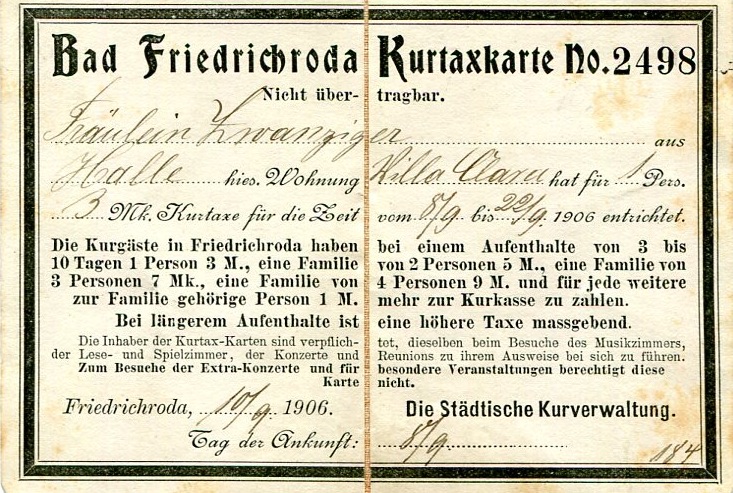 Bad Friedrichroda Kurtaxkarte No. 2498
Nicht über- tragbar.
Fräulein Zwanziger aus
Halle hies. Wohnung Villa Clara hat für 1 Pers.
3 Mk. Kurtaxe für die Zeit vom 8/9 bis 22/9. 1906 entrichtet.
Die Kurgäste in Friedrichroda haben bei einem Aufenthalte von 3 bis
10 Tagen 1 Person 3 M., eine Familie von 2 Personen 5 M., eine Familie von
3 Personen 7 Mk., eine Familie von 4 Personen 9 M. und für jede weitere
zur Familie gehörige Person 1 M. mehr zur Kurkasse zu zahlen.
Bei längerem Aufenthalte ist eine höhere Taxe massgebend.
Die Inhaber der Kurtax-Karten sind verpflich- tet, dieselben beim Besuche des Musikzimmers,
der Lese- und Spielzimmer, der Konzerte und Reunions zu ihrem Ausweise bei sich zu führen.
Zum Besuche der Extra-Konzerte und für besondere Veranstaltungen berechtigt diese
Karte nicht.
Friedrichroda, 10/9. 1906. Die Städtische Kurverwaltung.
Tag der Ankunft: 8/9. 184